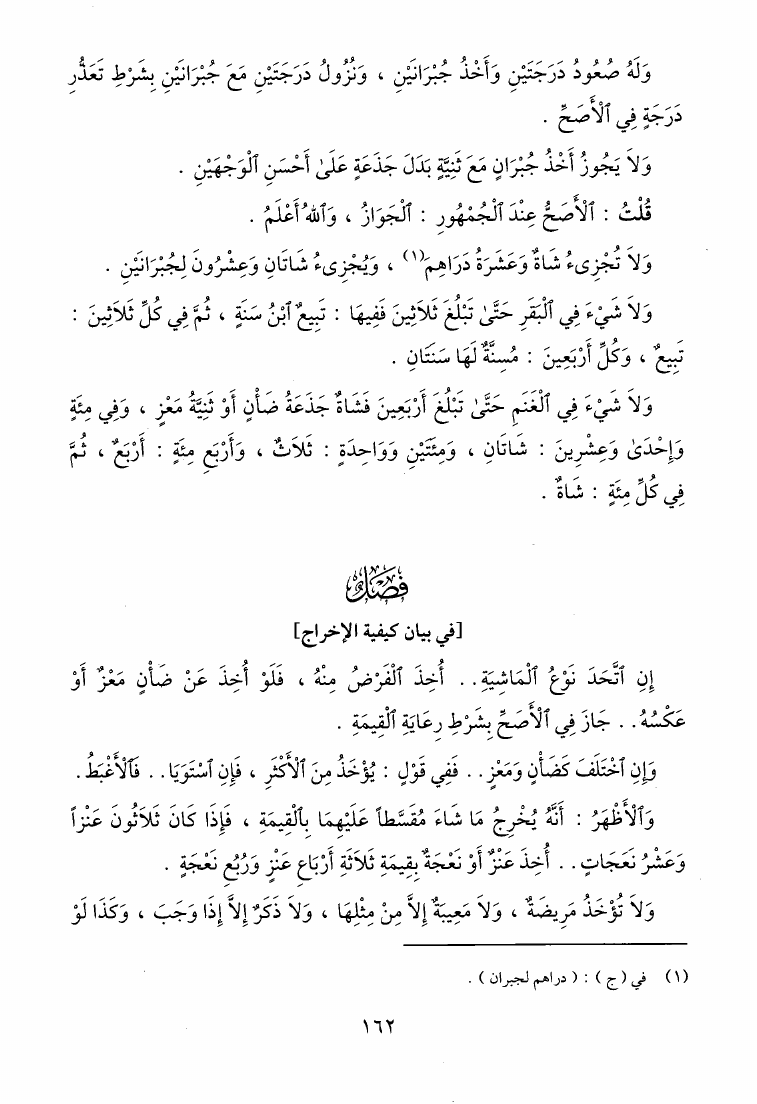 وَلَهُ صُعُودُ دَرَجَتَيْنِ وَأَخْذُ جُبْرَانَيْنِ ، وَنُزُولُ دَرَجَتَيْنِ مَعَ جُبْرَانَيْنِ بِشَرْطِ تَعَذُّرِ
دَرَجَةٍ فِي ٱلْأَصَحِّ .
وَلاَ يَجُوزُ أَخْذُ جُبْرَانٍ مَعَ ثَنِيَّةٍ بَدَلَ جَذَعَةٍ عَلَىٰ أَحْسَنِ ٱلْوَجْهَيْنِ .
قُلْتُ : ٱلْأَصَحُّ عِنْدَ ٱلْجُمْهُورِ : ٱلْجَوَازُ ، وَٱللهُ أَعْلَمُ .
وَلاَ تُجْزِىءُ شَاةٌ وَعَشَرَةُ دَرَاهِمَ(١) ، وَيُجْزِىءُ شَاتَانِ وَعِشْرُونَ لِجُبْرَانَيْنِ .
وَلاَ شَيْءَ فِي ٱلْبَقَرِ حَتَّىٰ تَبْلُغَ ثَلاَثِينَ فَفِيهَا : تَبِيعٌ ٱبْنُ سَنَةٍ ، ثُمَّ فِي كُلِّ ثَلاَثِينَ :
تَبِيعٌ ، وَكُلِّ أَرْبَعِينَ : مُسِنَّةٌ لَهَا سَنَتَانِ .
وَلاَ شَيْءَ فِي ٱلْغَنَمِ حَتَّىٰ تَبْلُغَ أَرْبَعِينَ فَشَاةٌ جَذَعَةُ ضَأْنٍ أَوْ ثَنِيَّةُ مَعْزٍ ، وَفِي مِئَةٍ
وَإِحْدَىٰ وَعِشْرِينَ : شَاتَانِ ، وَمِئَتَيْنِ وَوَاحِدَةٍ : ثَلاَثٌ ، وَأَرْبَعِ مِئَةٍ : أَرْبَعٌ ، ثُمَّ
فِي كُلِّ مِئَةٍ : شَاةٌ .
فَصْلٌ
[في بيان كيفية الإخراج]
إِنِ ٱتَّحَدَ نَوْعُ ٱلْمَاشِيَةِ . . أُخِذَ ٱلْفَرْضُ مِنْهُ ، فَلَوْ أُخِذَ عَنْ ضَأْنٍ مَعْزٌ أَوْ
عَكْسُهُ . . جَازَ فِي ٱلْأَصَحِّ بِشَرْطِ رِعَايَةِ ٱلْقِيمَةِ .
وَإِنِ ٱخْتَلَفَ كَضَأْنٍ وَمَعْزٍ . . فَفِي قَوْلٍ : يُؤْخَذُ مِنَ ٱلْأَكْثَرِ ، فَإِنِ ٱسْتَوَيَا . . فَٱلْأَغْبَطُ .
وَٱلْأَظْهَرُ : أَنَّهُ يُخْرِجُ مَا شَاءَ مُقَسَّطاً عَلَيْهِمَا بِٱلْقِيمَةِ ، فَإِذَا كَانَ ثَلاَثُونَ عَنْزاً
وَعَشْرُ نَعَجَاتٍ . . أُخِذَ عَنْزٌ أَوْ نَعْجَةٌ بِقِيمَةِ ثَلاَثَةِ أَرْبَاعِ عَنْزٍ وَرُبُعِ نَعْجَةٍ .
وَلاَ تُؤْخَذُ مَرِيضَةٌ ، وَلاَ مَعِيبَةٌ إِلاَّ مِنْ مِثْلِهَا ، وَلاَ ذَكَرٌ إِلاَّ إِذَا وَجَبَ ، وَكَذَا لَوْ
(١) في ( ج ) : ( دراهم لجبران ) .
١٦٢